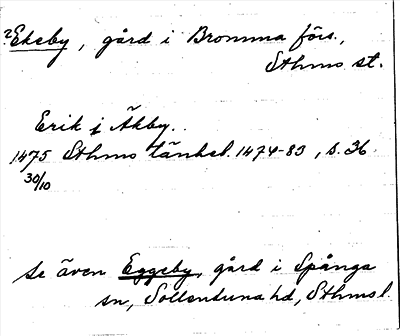 ?Ekeby, gård i Bromma förs.,
Sthms st.
Erik i Äkby.
1475 Sthms tänkeb. 1474-83, s. 36.
30/10
Se även Eggeby, gård i Spånga
sn, Sollentuna hd, Sthms l.